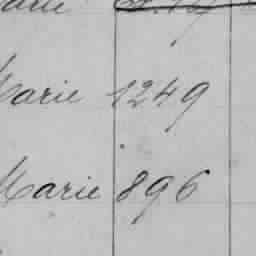 Marie 1249
Marie 896